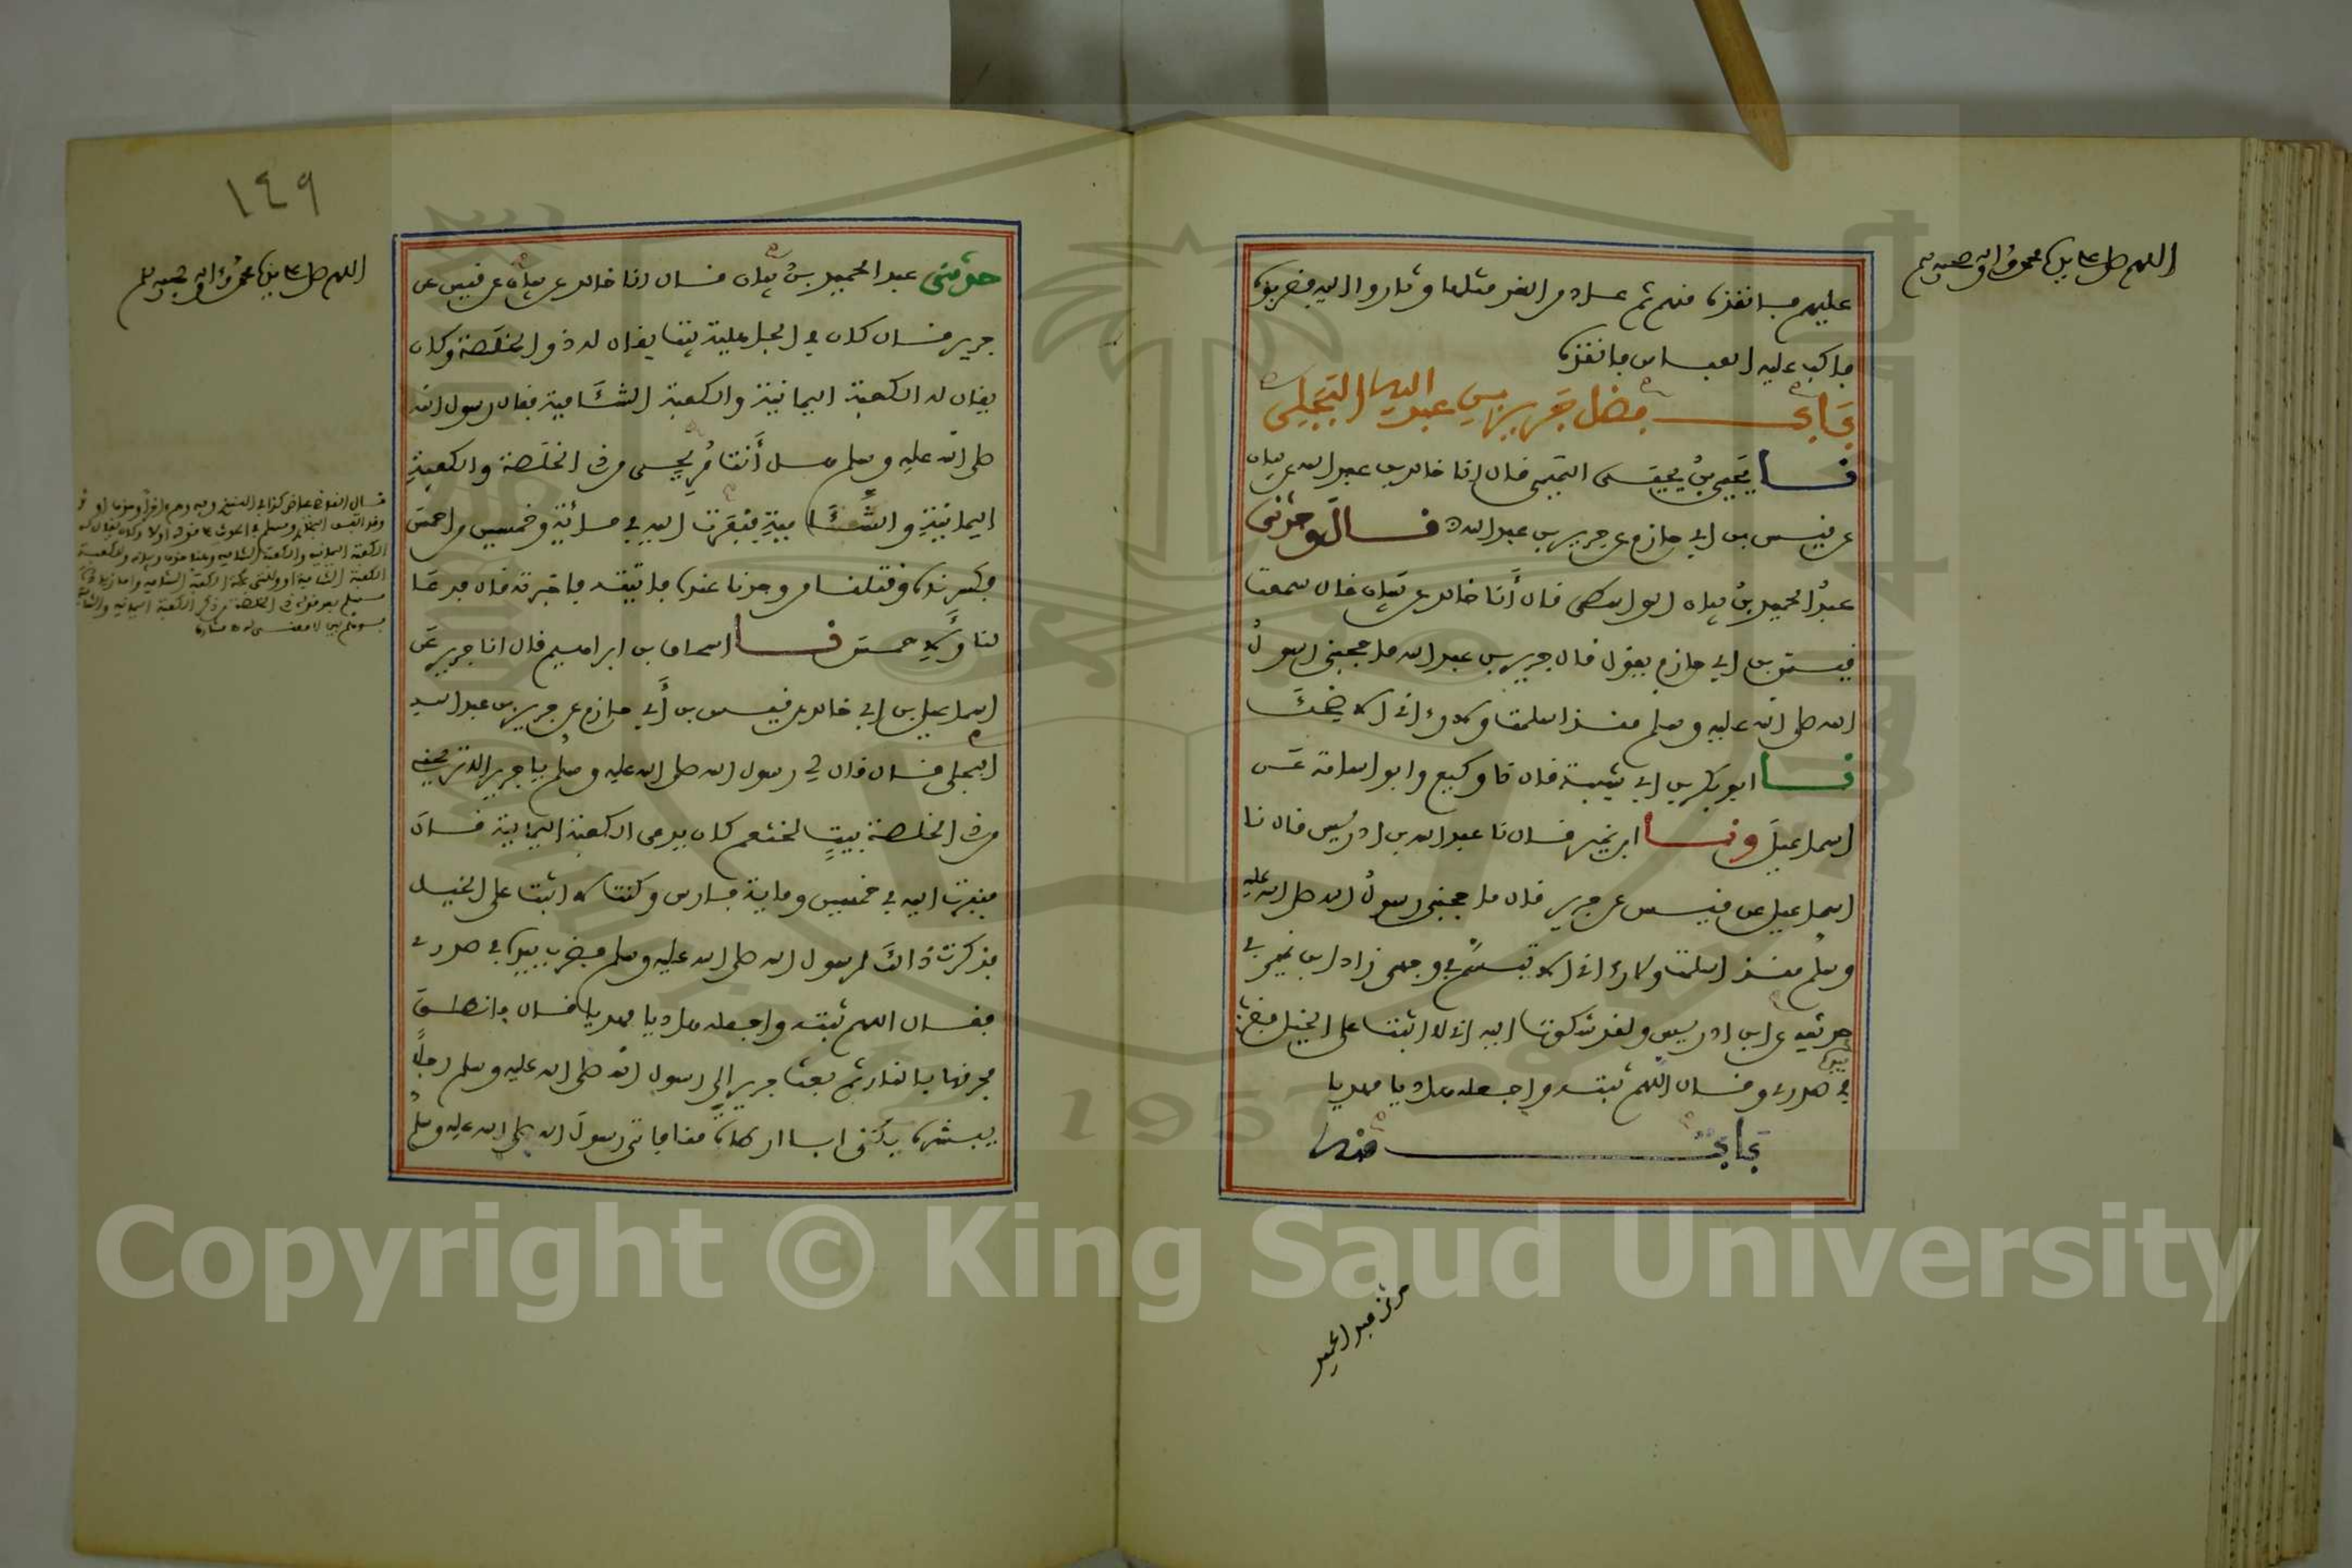 اللهم صل على سيدنا محمد وآله وصحبه وسلم
عليهم فانقذه منهم ثم عاد من الغد مثلها وثاروا اليه فضربوه
فاكب عليه العباس فانقذه
باب فضل جرير بن عبد الله البجلي
نا يحيى بن يحيى التميمي قال انا خالد بن عبد الله عن بيان
عن قيس بن ابي حازم عن جرير بن عبد الله ح قال وحدثني
عبد الحميد بن بيان الواسطي قال أنا خالد عن بيان قال سمعت
قيس بن ابي حازم يقول قال جرير بن عبد الله ما حجبني رسول
الله صلى الله عليه وسلم منذ اسلمت ولا رءاني الا ضحك
نا ابو بكر بن ابي شيبة قال نا وكيع وابو اسامة عن
اسماعيل ونا ابن نمير قال نا عبد الله بن ادريس قال نا
اسماعيل عن قيس عن جرير قال ما حجبني رسول الله صلى الله عليه
وسلم منذ اسلمت ولا رءاني الا تبسم في وجهي زاد ابن نمير في
حديثه عن ابن ادريس ولقد شكوت اليه اني لا اثبت على الخيل فضرب
بيده
في صدري وقال اللهم ثبته واجعله هاديا مهديا
باب منه
حدثني عبد الحميد
١٤٩
اللهم صل على سيدنا محمد وآله وصحبه وسلم
حدثني عبد الحميد بن بيان قال انا خالد عن بيان عن قيس عن
جرير قال كان في الجاهلية بيت يقال له ذو الخلصة وكان
يقال له الكعبة اليمانية والكعبة الشامية فقال رسول الله
صلى الله عليه وسلم هل أنت مريحي من ذي الخلصة والكعبة
اليمانية والشامية فنفرت اليه في مائة وخمسين من احمس
فكسرناه وقتلنا من وجدنا عنده فاتيته فاخبرته قال فدعا
لنا ولاحمس نا اسحاق بن ابراهيم قال انا جرير عن
اسماعيل بن ابي خالد عن قيس بن أبي حازم عن جرير بن عبد الله
البجلي قال قال لي رسول الله صلى الله عليه وسلم يا جرير الا تريحني
من ذي الخلصة بيت لخثعم كان يدعى الكعبة اليمانية قال
فنفرت اليه في خمسين ومائة فارس وكنت لا اثبت على الخيل
فذكرت ذالك لرسول الله صلى الله عليه وسلم فضرب بيده في صدري
فقال اللهم ثبته واجعله هاديا مهديا قال فانطلق
فحرقها بالنار ثم بعث جرير إلى رسول الله صلى الله عليه وسلم رجلا
يبشره يكنى ابا ارطاة منا فاتى رسول الله صلى الله عليه وسلم
Copyright © King Saud University
1957